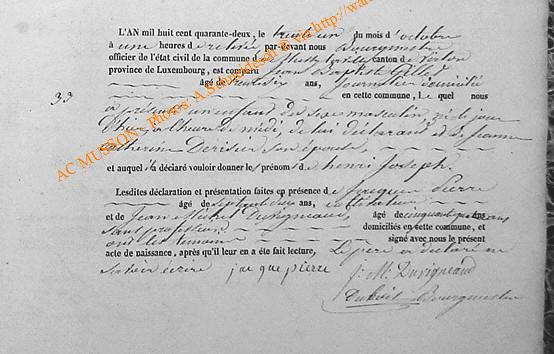 L'AN mil huit cent quarante-deux, le trente un du mois d'octobre
à une heures de relevé par-devant nous Bourgmestre
officier de l'état civil de la commune de canton de Virton
province de Luxembourg, est comparu Jean Baptiste Gillet
âgé de ans, Journalier domicilié
33
en cette commune, Le quel nous
a présenté un enfant du sexe masculin, né le jour
d'hier à l'heure de midi, de lui déclarant et de Jeanne
Catherine Derisier son épouse,
et auquel il a déclaré vouloir donner le prénom de henri Joseph.
Lesdites déclaration et présentation faites en présence de Jacques Pierre
âgé de ans, cultivateur
et de Jean Michel Duvigneaud, âgé de cinquante ans
sans profession domiciliés en cette commune, et
ont les témoins signé avec nous le présent
acte de naissance, après qu'il leur en a été fait lecture, Le père a déclaré ne
savoir écrire jacque pierre
J. M. Duvigneaud
Bourgmestre
AC MUSSON - Photos: A. Schneider